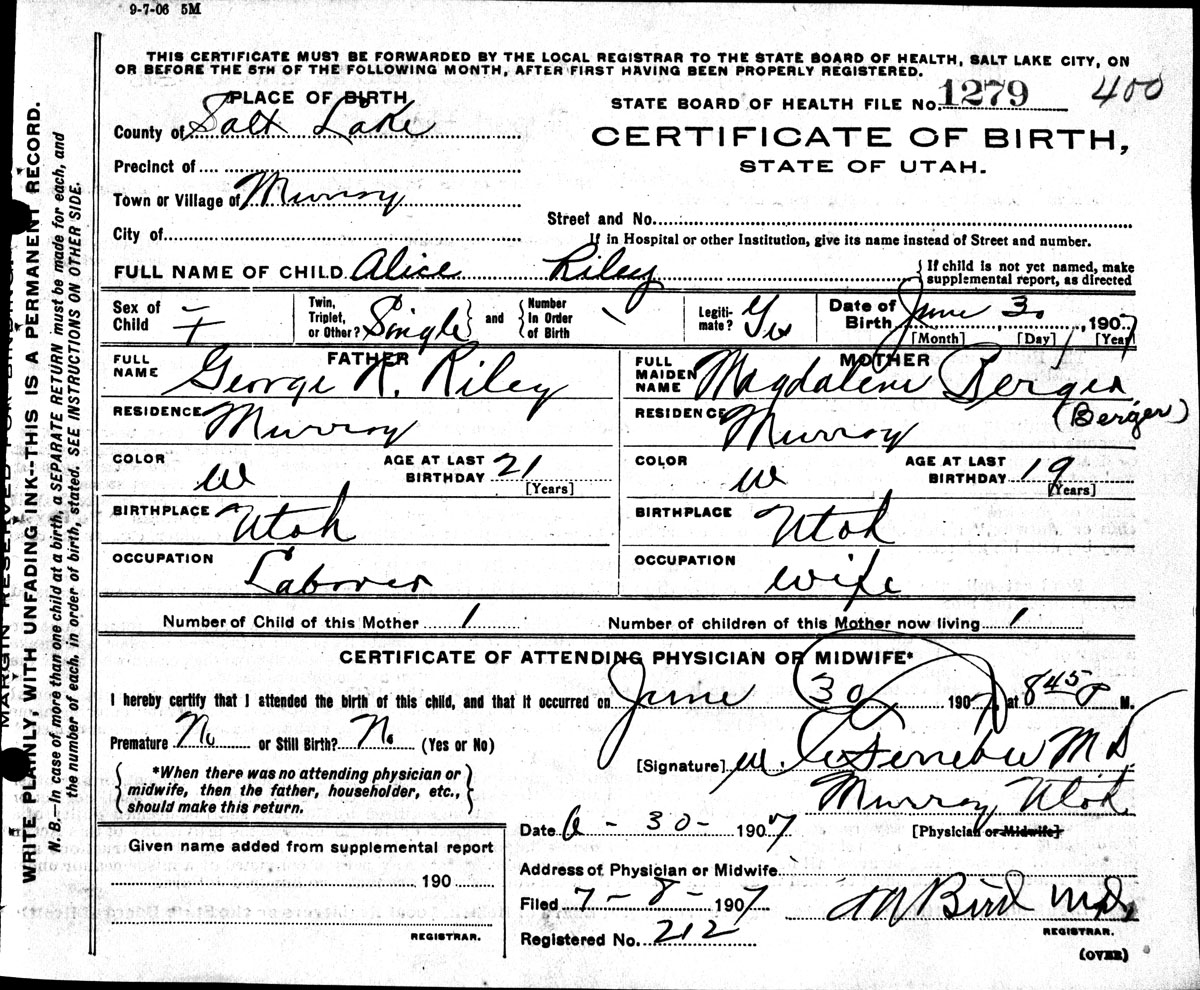 9-7-06 5M
THIS CERTIFICATE MUST BE FORWARDED BY THE LOCAL REGISTRAR TO THE STATE BOARD OF HEALTH, SALT LAKE CITY, ON
OR BEFORE THE 5TH OF THE FOLLOWING MONTH, AFTER FIRST HAVING BEEN PROPERLY REGISTERED.
PLACE OF BIRTH
County of Salt Lake
Precinct of
Town or Village of Murray
City of
STATE BOARD OF HEALTH FILE No. 1279 400
CERTIFICATE OF BIRTH,
STATE OF UTAH.
Street and No.
If in Hospital or other Institution, give its name instead of Street and number.
FULL NAME OF CHILD Alice Riley
{ If child is not yet named, make
supplemental report, as directed
Sex of Child F
Twin, Triplet, or Other? Single } and { Number In Order of Birth
Legitimate? Yes
Date of Birth June 30, 1907
[Month] [Day] [Year]
FATHER
FULL NAME George R. Riley
RESIDENCE Murray
COLOR W AGE AT LAST BIRTHDAY 21
[Years]
BIRTHPLACE Utah
OCCUPATION Laborer
MOTHER
FULL MAIDEN NAME Magdalene Berger
(Berger)
RESIDENCE Murray
COLOR W AGE AT LAST BIRTHDAY 19
[Years]
BIRTHPLACE Utah
OCCUPATION wife
Number of Child of this Mother 1 Number of children of this Mother now living 1
CERTIFICATE OF ATTENDING PHYSICIAN OR MIDWIFE*
I hereby certify that I attended the birth of this child, and that it occurred on June 30 1907, at 8 45 P M.
Premature No or Still Birth? No (Yes or No)
{ *When there was no attending physician or
midwife, then the father, householder, etc.,
should make this return. }
[Signature] M D
Murray Utah
Date 6 - 30 - 1907 [Physician or Midwife]
Given name added from supplemental report
190
REGISTRAR.
Address of Physician or Midwife
Filed 7 - 8 - 1907 Bird M.D.
REGISTRAR.
Registered No. 212
(OVER)
MARGIN RESERVED FOR BINDING.
WRITE PLAINLY, WITH UNFADING INK--THIS IS A PERMANENT RECORD.
N. B.—In case of more than one child at a birth, a SEPARATE RETURN must be made for each, and
the number of each, in order of birth, stated. SEE INSTRUCTIONS ON OTHER SIDE.